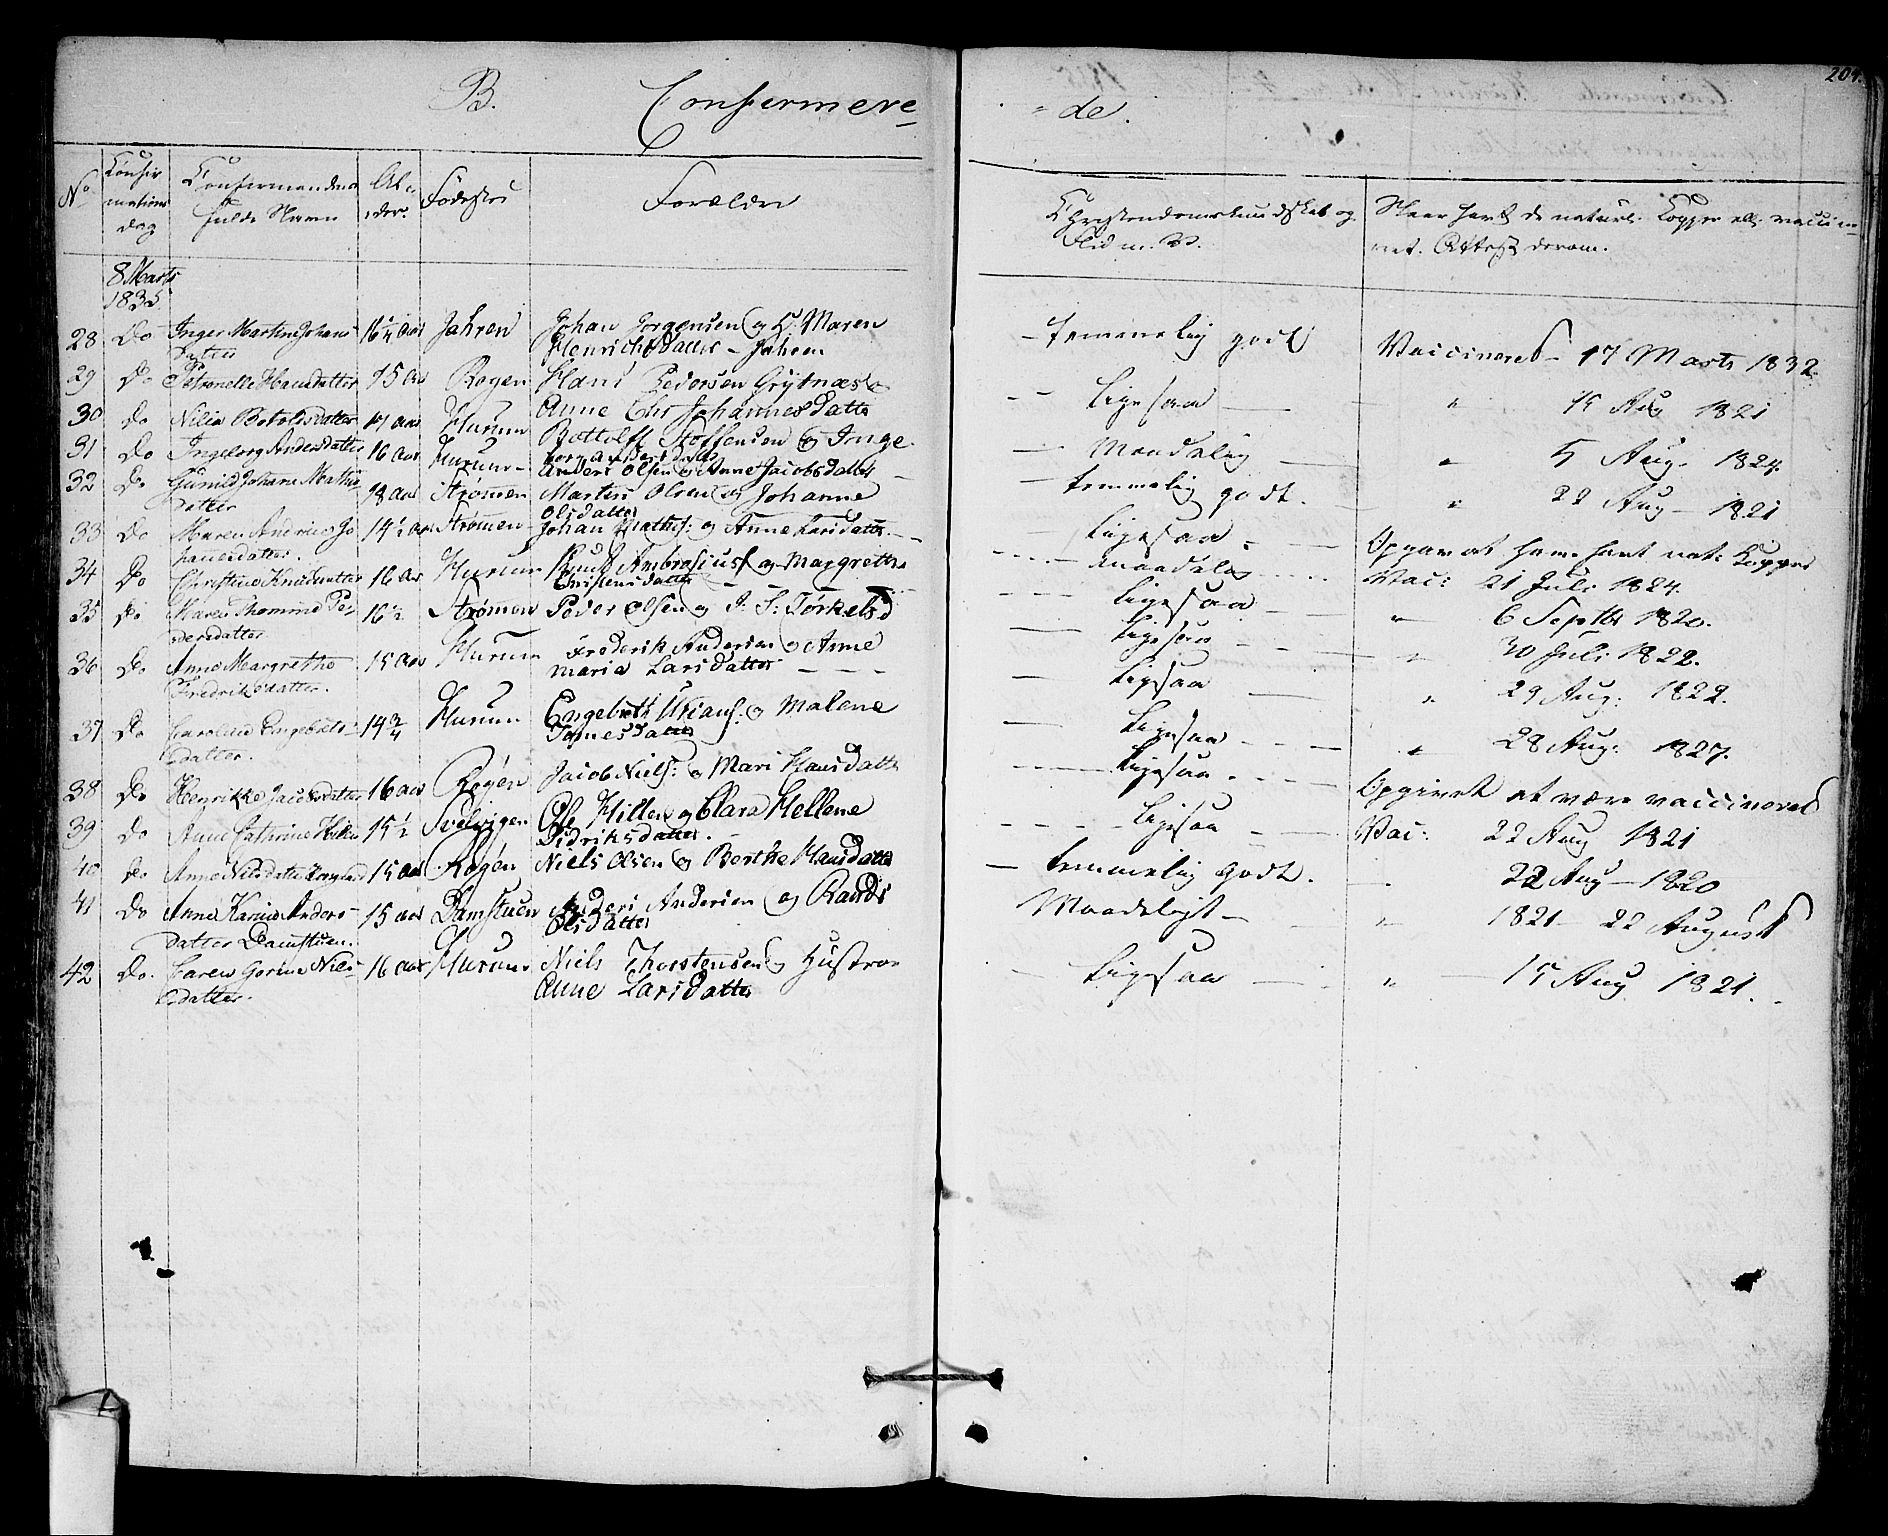 204.
B. Confirmere
= de.
No
Confir
mations
dag
Confirmandens
fulde Navn
Al-
der.
Fødested
Forældre
Christendomskundskab og
Flid m. V.
Naar havt de naturl. Kopper ell. vacci-
net. Attest derom.
8 Marts
1835.
28 Do Inger Martine Johans 16¼ Aar Jahren Johan Jørgensen og H: Maren
datter Henrichsdatter - Jahren
— temmelig godt Vaccineret - 17 Marts 1832
29 Do Petronelle Hansdatter 15 Aar Røgen Hans Pedersen Grytnæs
Anne Chr Johannesdatter
— — Ligesaa — " 15 Aug 1821
30 Do Nilia Botolfsdatter Aar Hurum Bottolf Stoffensen og Inge-
borg Andersdatter
— Maadelig — " 5 Aug. 1824.
31 Do Ingeborg Andersdatter 16 Aar Hurum Anders Olsen og Anne Jacobsdatter
— temmelig godt. " 22 Aug — 1821
32 Do Gunild Johane Mathis- 18 Aar Strømmen Martin Olsen og Johanne
datter Olsdatter
— Ligesaa — Opgav at have havt nat: Kopper
33 Do Maren Andrine Jo 14½ Aar Strømmen Johan Mathis: og Anne Larsdatter
hansdatter.
— maadelig Vac: 21 Juli 1824.
34 Do Christine Knudsdatter 16 Aar Hurum Knud Ambrosiuss og Margrethe
Christensdatter
Ligesaa — " 6 Septbr 1820.
35 Do Maren Thomine Pe- 16½ Strømmen Peder Olsen og I. S: Tørkelsd
dersdatter
— Ligesaa — " 30 Juli 1822.
36 Do Anne Margrethe 15 Aar Hurum Frederik Andersen og Anne
Fredriksdatter. Maria Larsdatter
— Ligesaa — " 29 Aug: 1822.
37 Do Caroline Engebrets- 14¾ Hurum Engebreth Kians: og Malene
datter.
— Ligesaa — " 28 Aug: 1827.
38 Do Henrikke Jacobsdatter 16 Aar Røgen Jacob Niels: og Mari Hansdatter
— Ligesaa — Opgivet at være vaccineret
39 Do Anne Cathrine Hillen 15½ Svelvigen Ole Hillen og Clara Hellene
Didriksdatter. —
— Ligesaa — Vac: 22 Aug 1821
40 Do Anne Nilsdatter 15 Aar Røgen Niels Olsen og Berthe Hansdatter
— temmelig godt. 22 Aug — 1820
41 Do Anne Karine Anders- 15 Aar Damstuen Anders Andersen og Randi
datter Damstuen. Olsdatter
Maadeligt — " 1821 — 22 August
42 Do. Caren Gorine Niels- 16 Aar Hurum Niels Thorstensen og Hustroe
datter. Anne Larsdatter
— Ligesaa — " — 15 Aug 1821.